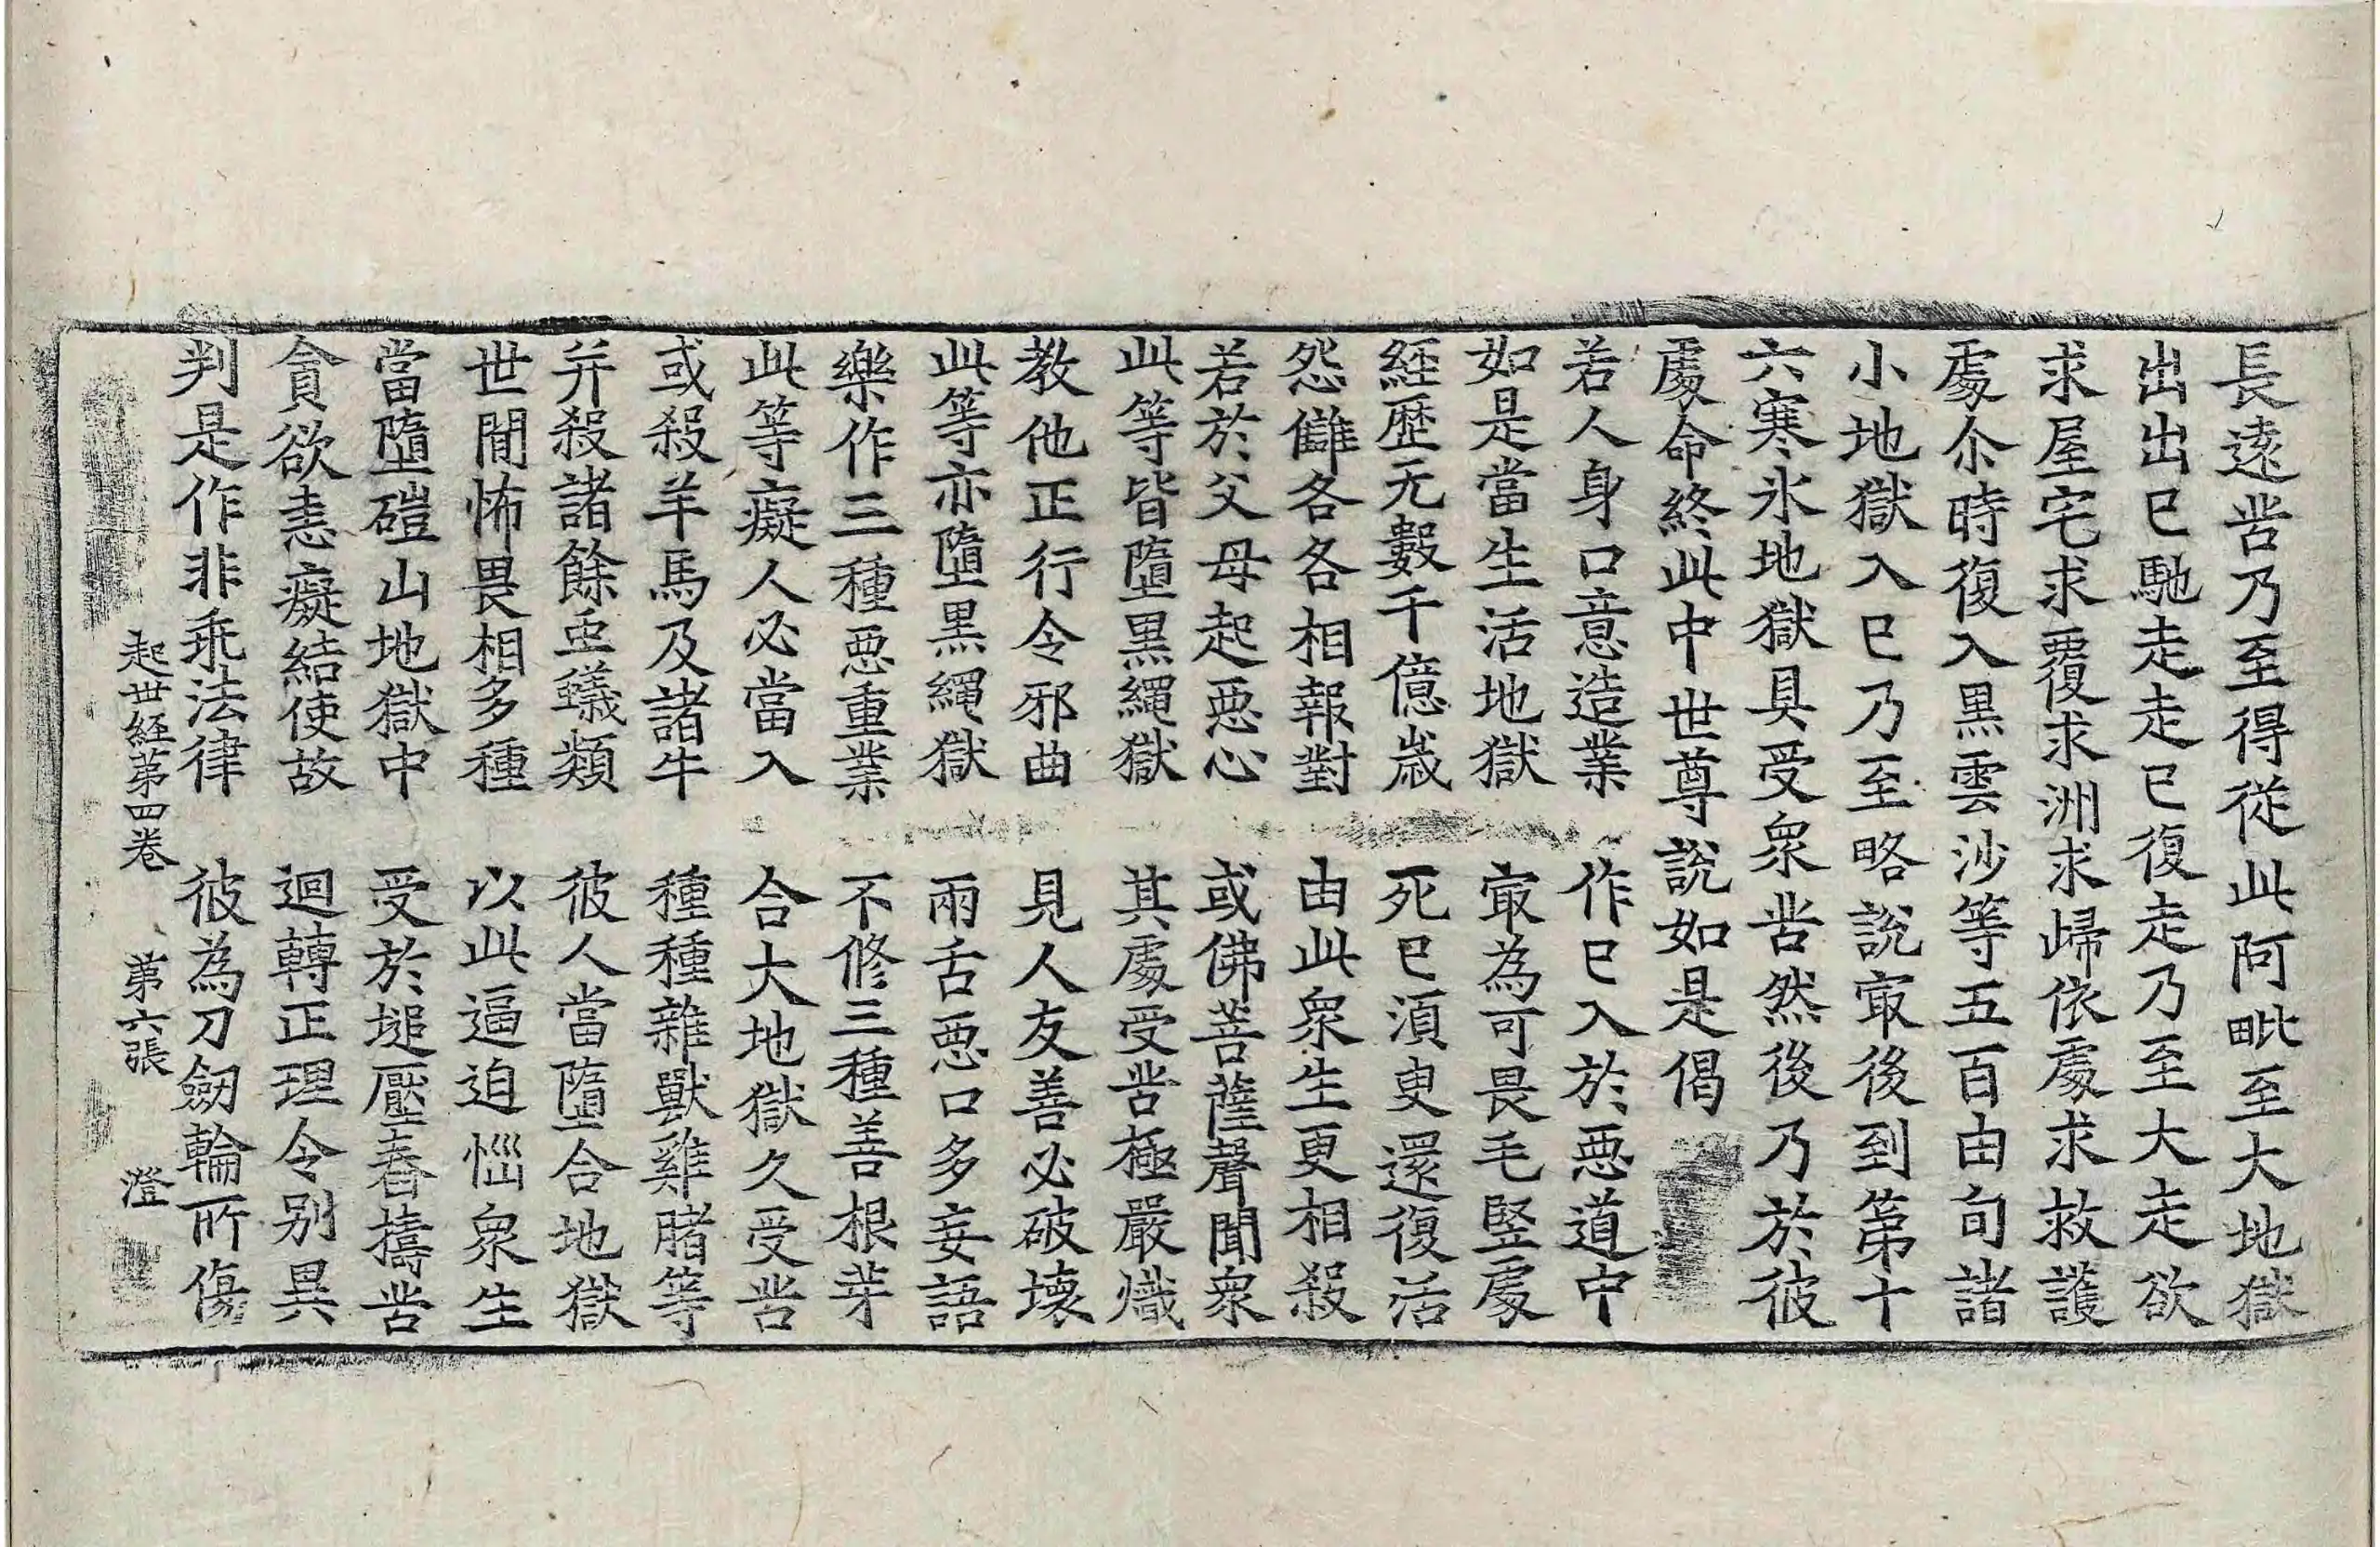 長遠苦乃至得從此阿毗至大地獄
出出已馳走走已復走乃至大走欲
求屋宅求覆求洲求歸依處求救護
處尒時復入黒雲沙等五百由旬諸
小地獄入已乃至略說㝡後到第十
六寒氷地獄具受衆苦然後乃於彼
處命終此中世尊說如是偈
若人身口意造業　作已入於惡道中
如是當生活地獄　㝡為可畏毛竪處
經歷无數千億歲　死已須臾還復活
怨讎各各相報對　由此衆生更相殺
若於父母起惡心　或佛菩薩聲聞衆
此等皆墮黒繩獄　其處受苦極嚴熾
教他正行令邪曲　見人友善必破壞
此等亦墮黒繩獄　兩舌惡口多妄語
樂作三種惡重業　不修三種善根芽
此等癡人必當入　合大地獄久受苦
或殺羊馬及諸牛　種種雜獸雞豬等
并殺諸餘虫蟻類　彼人當墮合地獄
世間怖畏相多種　以此逼迫惱衆生
當墮磑山地獄中　受於塠壓舂擣苦
貪欲恚癡結使故　迴轉正理令別異
判是作非乖法律　彼為刀劒輪所傷
起世經第四卷　第六張　澄